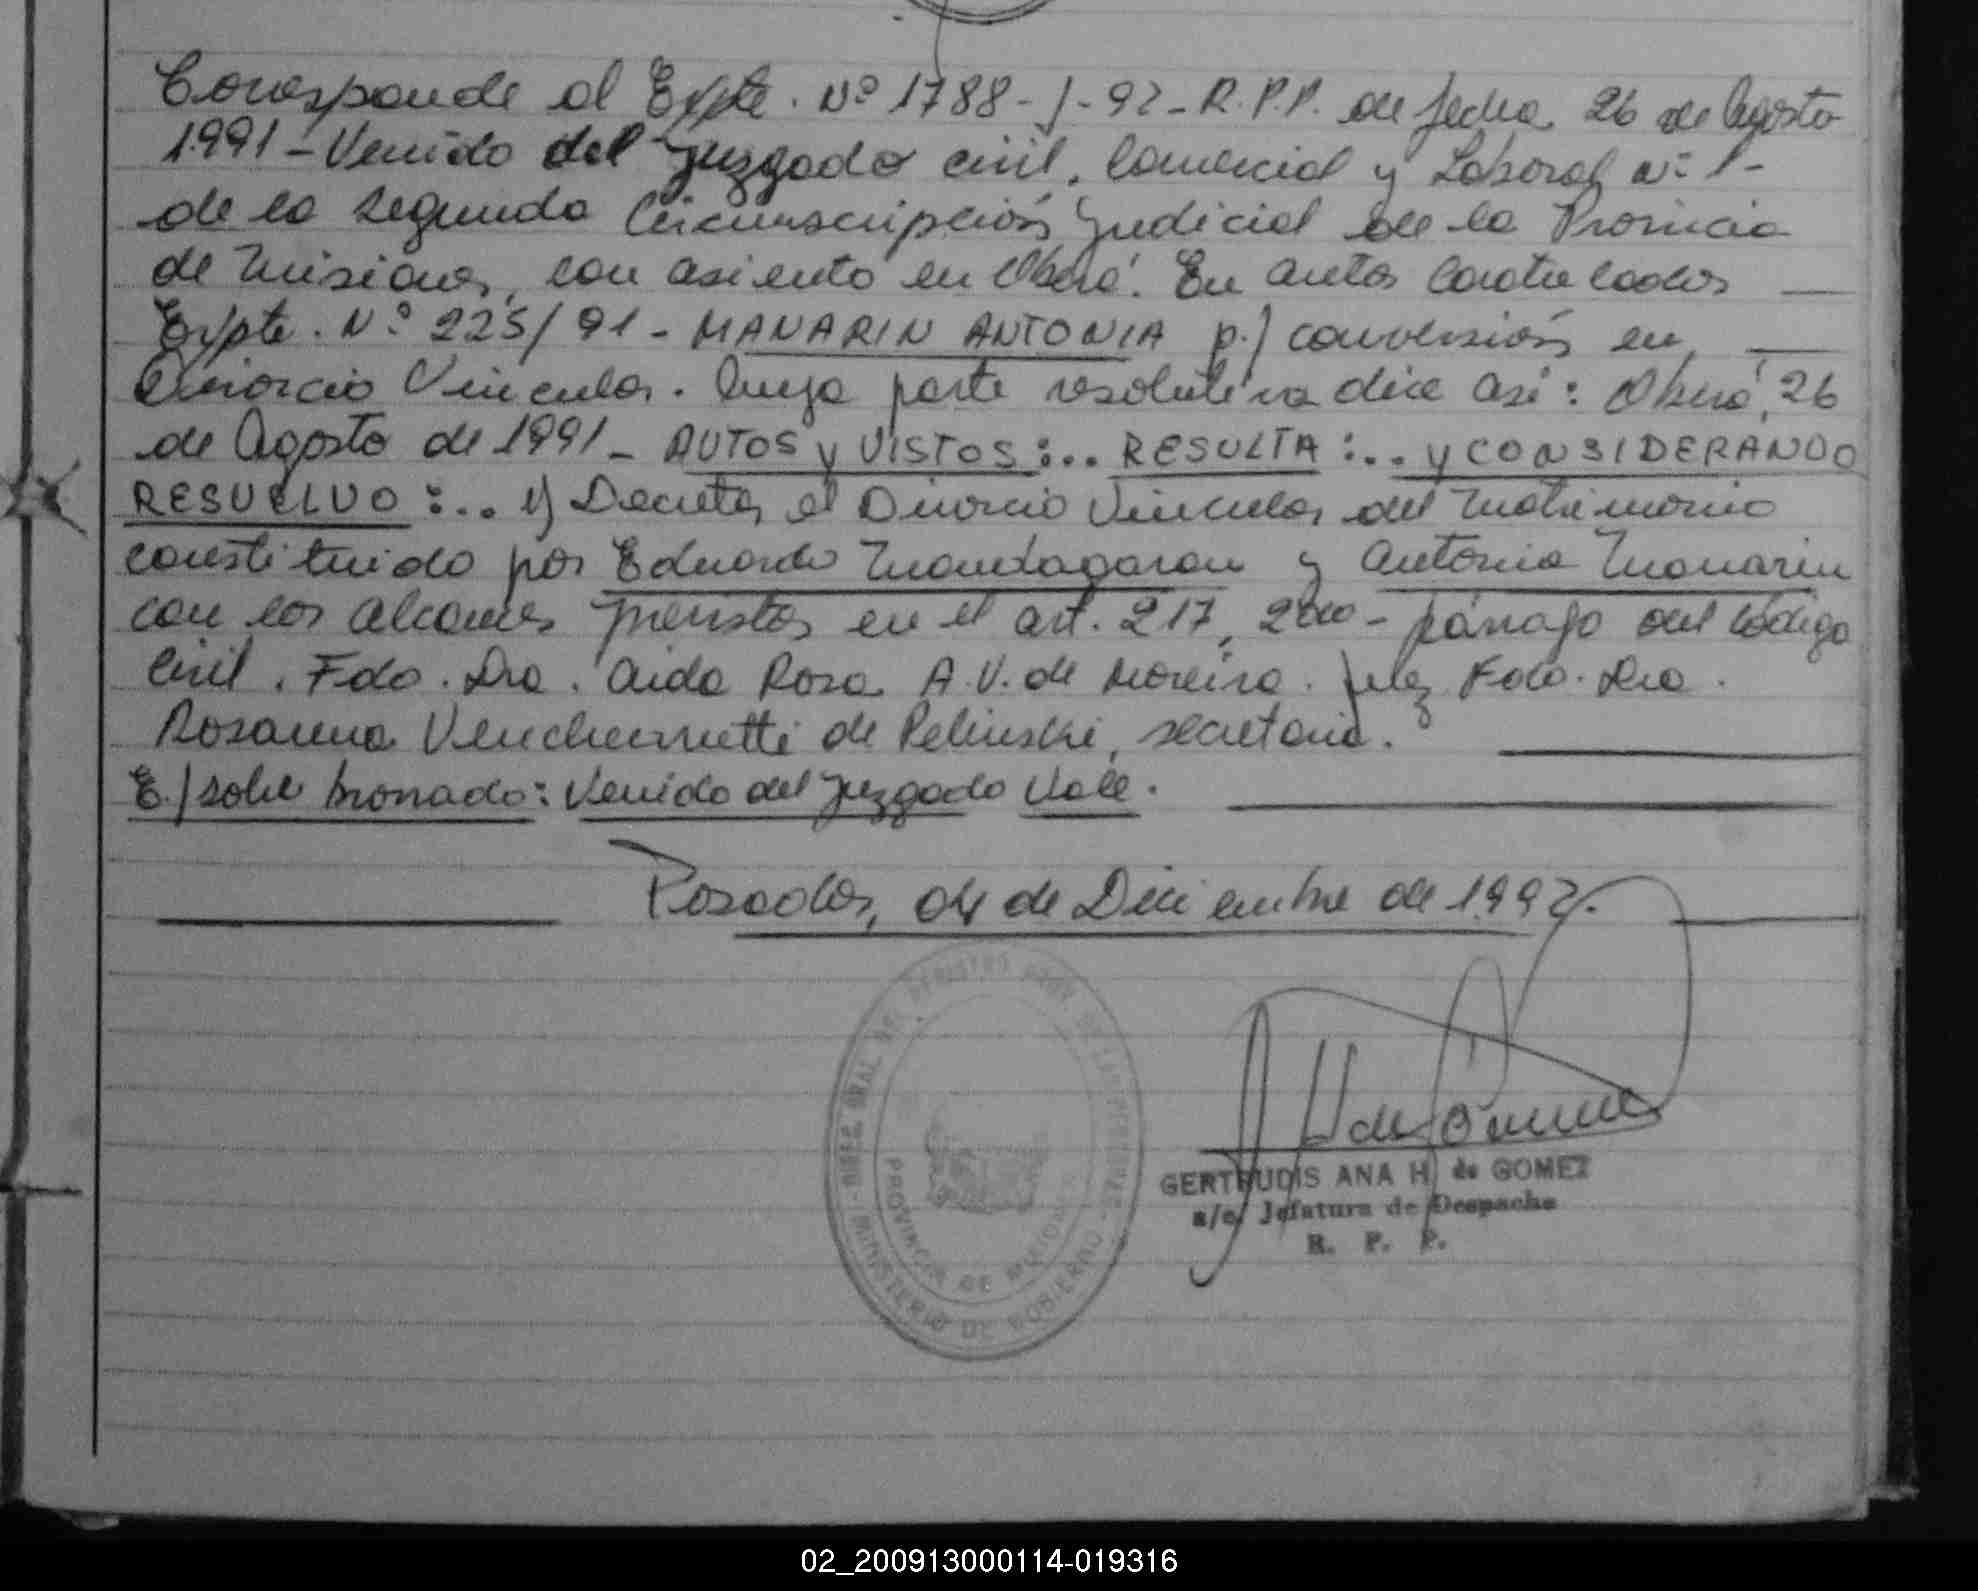 Corresponde al Expte. Nº 1788-J-92-R.P.P. de fecha 26 de Agosto
1.991 - Venido del Juzgado civil, Comercial y Laboral nº 1-
de la Segunda Circunscripción Judicial de la Provincia
de Misiones, con asiento en Oberá. En autos Caratulados
Expte. Nº 225/91 - MANARIN ANTONIA p./ conversión en
Divorcio Vincular. Cuya parte resolutiva dice así: Oberá, 26
de Agosto de 1991 - AUTOS y VISTOS:... RESULTA:... y CONSIDERANDO
RESUELVO:... 1) Decretar el Divorcio Vincular del Matrimonio
constituido por Eduardo Mandagaran y Antonia Manarin
con los alcances previstos en el art. 217, 2do - párrafo del Código
Civil. Fdo. Dra. Aida Rosa A.V. de Moreira. Juez Fdo. Dra.
Rosanna Venchiarutti de Pelinski, secretaria.
E./sobre borrado: Venido del Juzgado Vale.
Posadas, 04 de Diciembre de 1.992.
PROVINCIA DE MISIONES
MINISTERIO DE GOBIERNO
GERTRUDIS ANA H. de GOMEZ
a/c. Jefatura de Despacho
R. P. P.
02_200913000114-019316